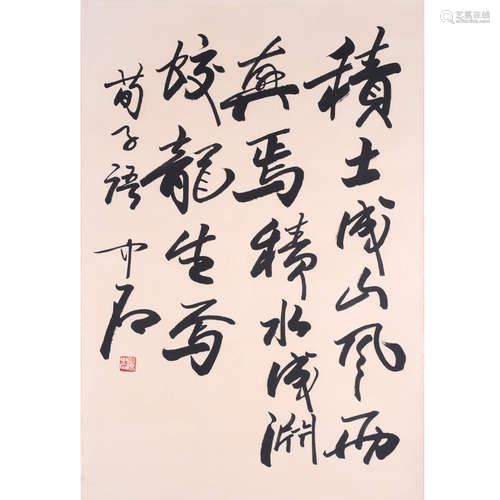 積土成山風雨
興焉積水成淵
蛟龍生焉
荀子語 中石